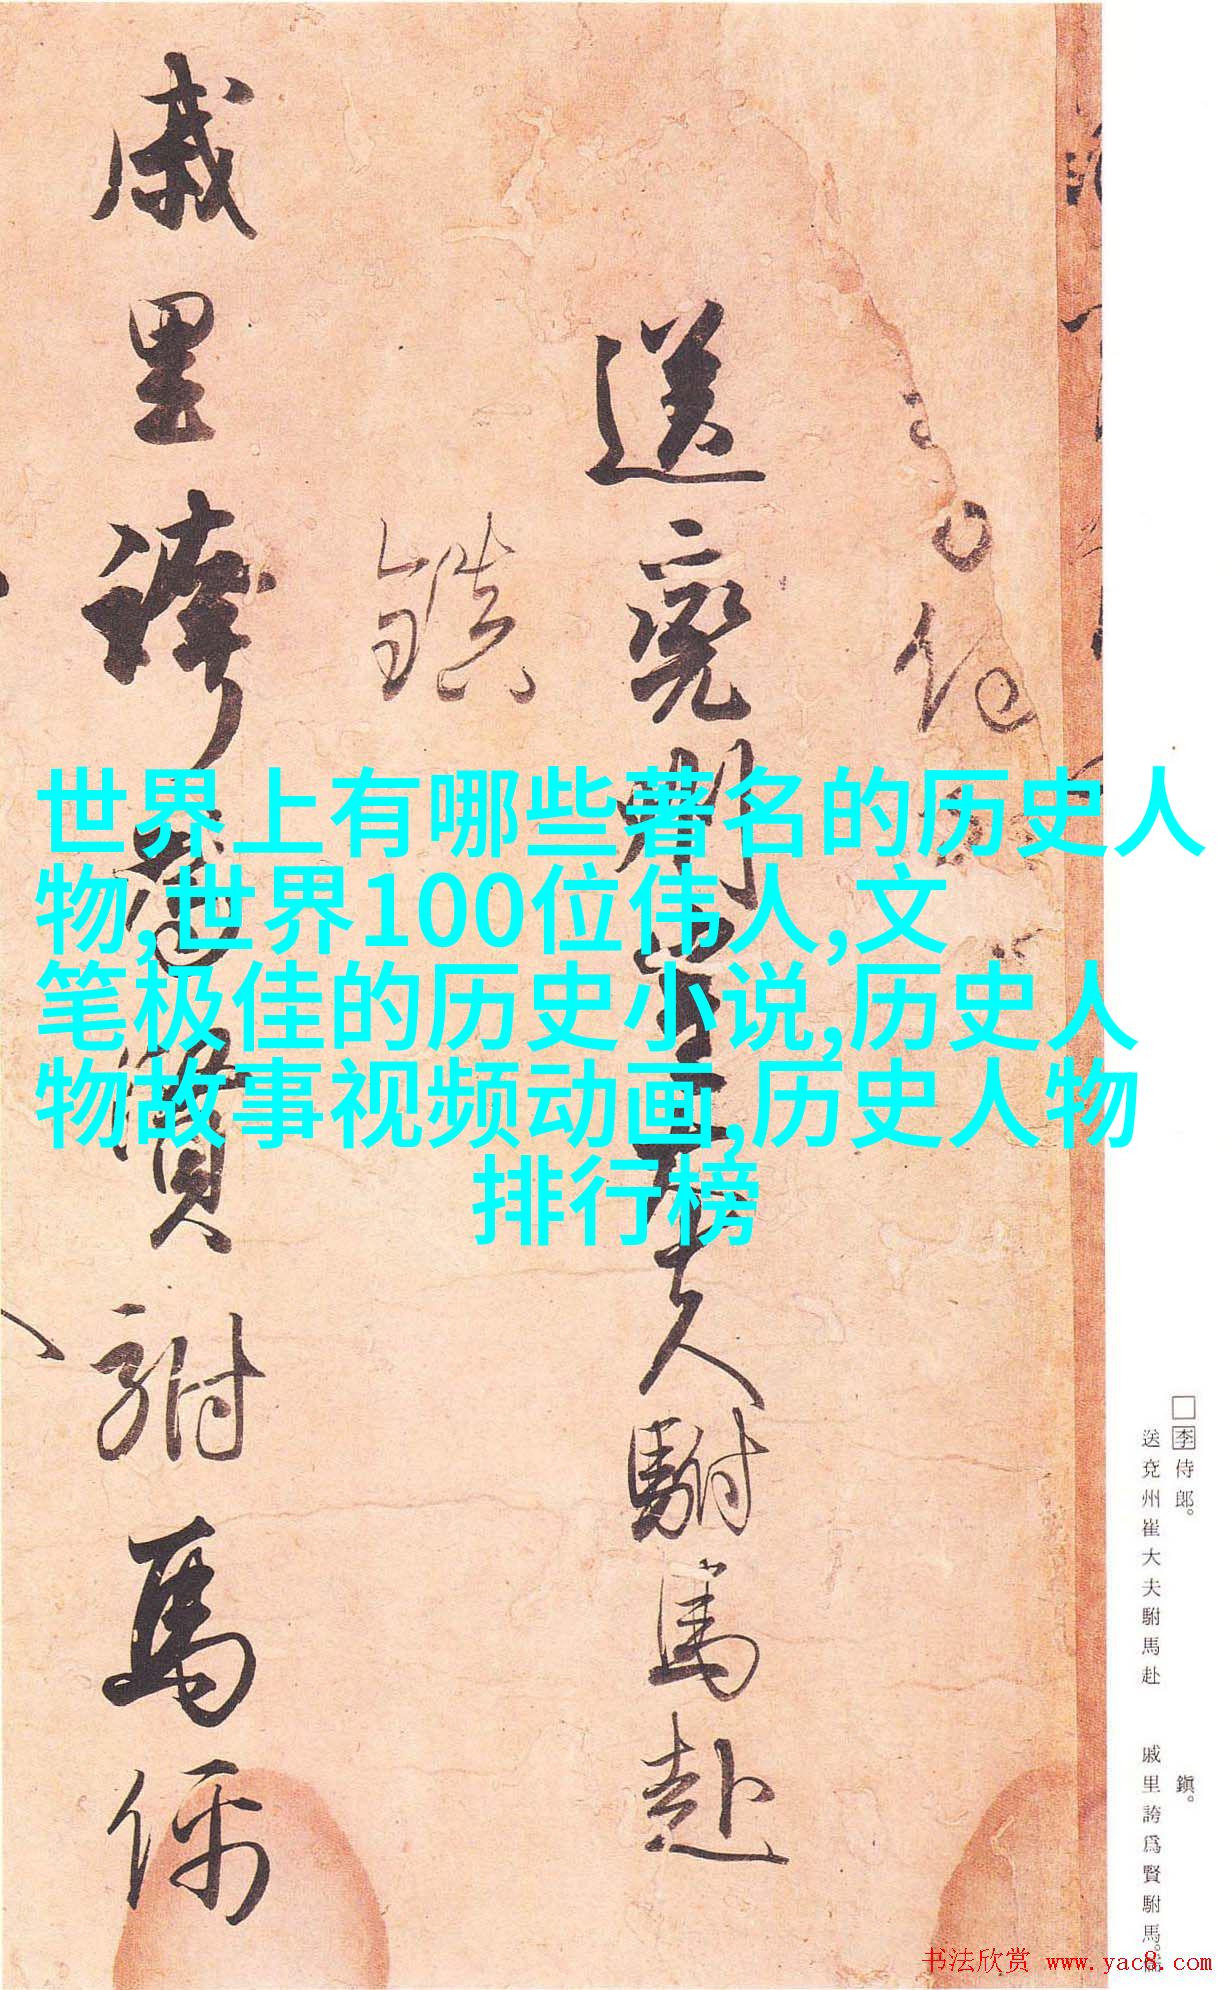 世界上有哪些著名的历史人
物,世界100位伟人,文
笔极佳的历史小说,历史人
物故事视频动画,历史人物
排行榜
送兖州崔大夫駙馬赴
鎮
戚里誇為賢駙馬儒
□李侍郎。
送兗州崔大夫駙馬赴
鎭。
戚里誇爲賢駙馬。儒
书法欣赏 www.yac8.com